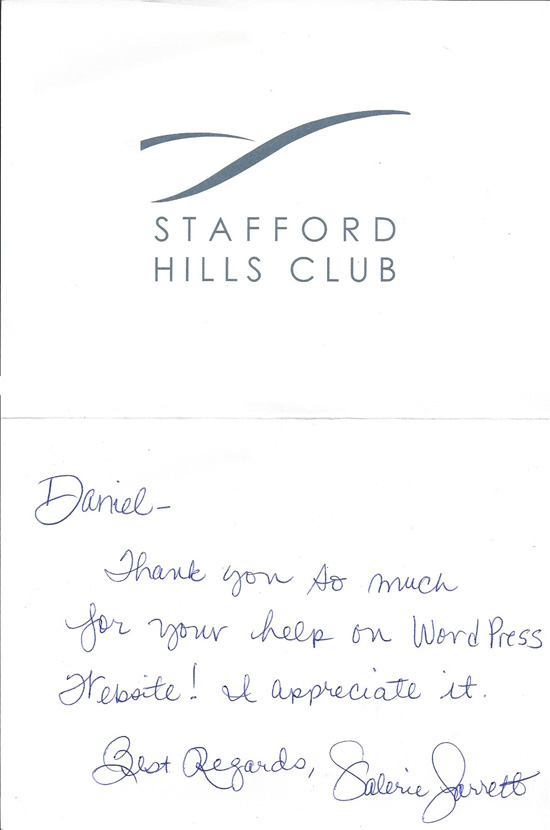 STAFFORD
HILLS CLUB
Daniel-
Thank you so much
for your help on WordPress
Website! I appreciate it.
Best Regards, Valerie Jarrett